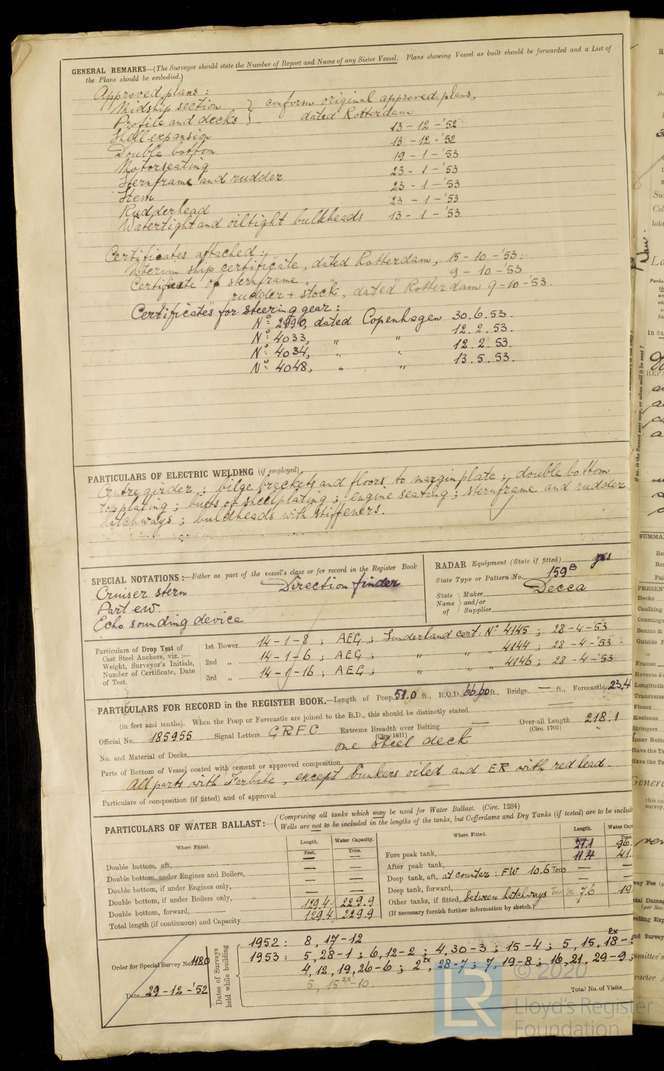 GENERAL REMARKS—(The Surveyor should state the Number of Report and Name of any Sister Vessel. Plans showing Vessel as built should be forwarded and a List of
the Plans should be embodied.)
Approved plans:
Midship section } conform original approved plans,
Profile and decks } dated Rotterdam
Shell expansion 13-12-'52
Double bottom 13-12-'52
Motorseating 19-1-'53
Sternframe and rudder 23-1-'53
Stem 23-1-'53
Rudderhead 23-1-'53
Watertight and oiltight bulkheads 13-1-'53
Certificates attached:
Interim ship certificate, dated Rotterdam, 15-10-'53.
Certificate of sternframe, 9-10-'53
rudder + stock, dated Rotterdam 9-10-'53.
Certificates for steering gear:
No: 2996, dated Copenhagen 30.6.53.
No: 4033, „ „ 12.2.53.
No: 4034, „ „ 12.2.53.
No: 4048, „ „ 13.5.53.
PARTICULARS OF ELECTRIC WELDING (if employed)
Centregirder; bilge brackets and floors to marginplate; double bottom
topplating; butts of steelplating; engine seating; sternframe and rudder
hatchways; bulkheads with stiffeners.
SPECIAL NOTATIONS:—Either as part of the vessel's class or for record in the Register Book
Cruiser stern Direction finder
Part ew.
Echo sounding device
RADAR Equipment (State if fitted) yes
State Type or Pattern No. 159B
State Name of Maker and/or Supplier Decca
Particulars of Drop Test of Cast Steel Anchors, viz.:— Weight, Surveyor's Initials, Number of Certificate, Date of Test.
1st Bower 14-1-8; AEG; Sunderland cert: No 4145; 28-4-53
2nd „ 14-1-6; AEG; „ „ 4144; 28-4-'53
3rd „ 14-0-16; AEG; „ „ 4146; 28-4-'53
PARTICULARS FOR RECORD IN THE REGISTER BOOK.—Length of Poop 51.0 ft., R.Q.D. 66.60 ft., Bridge — ft., Forecastle 23.4
(in feet and tenths). When the Poop or Forecastle are joined to the B.D., this should be distinctly stated.
Official No. 185955 Signal Letters GRFC Extreme Breadth over Belting (Circ. 1611) — Over-all Length (Circ. 1703) 218.1
No. and Material of Decks one steel deck
Parts of Bottom of Vessel coated with cement or approved composition
All parts with Ferlite, except bunkers oiled and ER with red lead.
Particulars of composition (if fitted) and of approval
PARTICULARS OF WATER BALLAST:—(Comprising all tanks which may be used for Water Ballast. (Circ. 1284)
Wells are not to be included in the lengths of the tanks, but Cofferdams and Dry Tanks (if tested) are to be inclu
Where Fitted. Length. Feet. Water Capacity. Tons.
Double bottom, aft, — —
Double bottom, under Engines and Boilers, — —
Double bottom, if under Engines only, — —
Double bottom, if under Boilers only, — —
Double bottom, forward, 129.4 229.9
Total length (if continuous) and Capacity 129.4 229.9
Where Fitted. Length. Water Cap
Fore peak tank, 21.1 96
After peak tank, 11.4 41
Deep tank, aft, at counter: FW 10.6 Tons —
Deep tank, forward, —
Other tanks, if fitted, between hatchways 7.6 19
(If necessary furnish further information by sketch.)
Order for Special Survey No. 1180
Date 29-12-'52
Dates of Surveys held while building
1952: 8, 17-12
1953: 5, 28-1; 6, 12-2; 4, 30-3; 15-4; 5, 15, 18-
4, 12, 19, 26-6; 2, 28-7; 7, 19-8; 16, 21, 29-9;
5, 15-10
Total No. of Visits
© 2020
LR
Lloyd's Register
Foundation